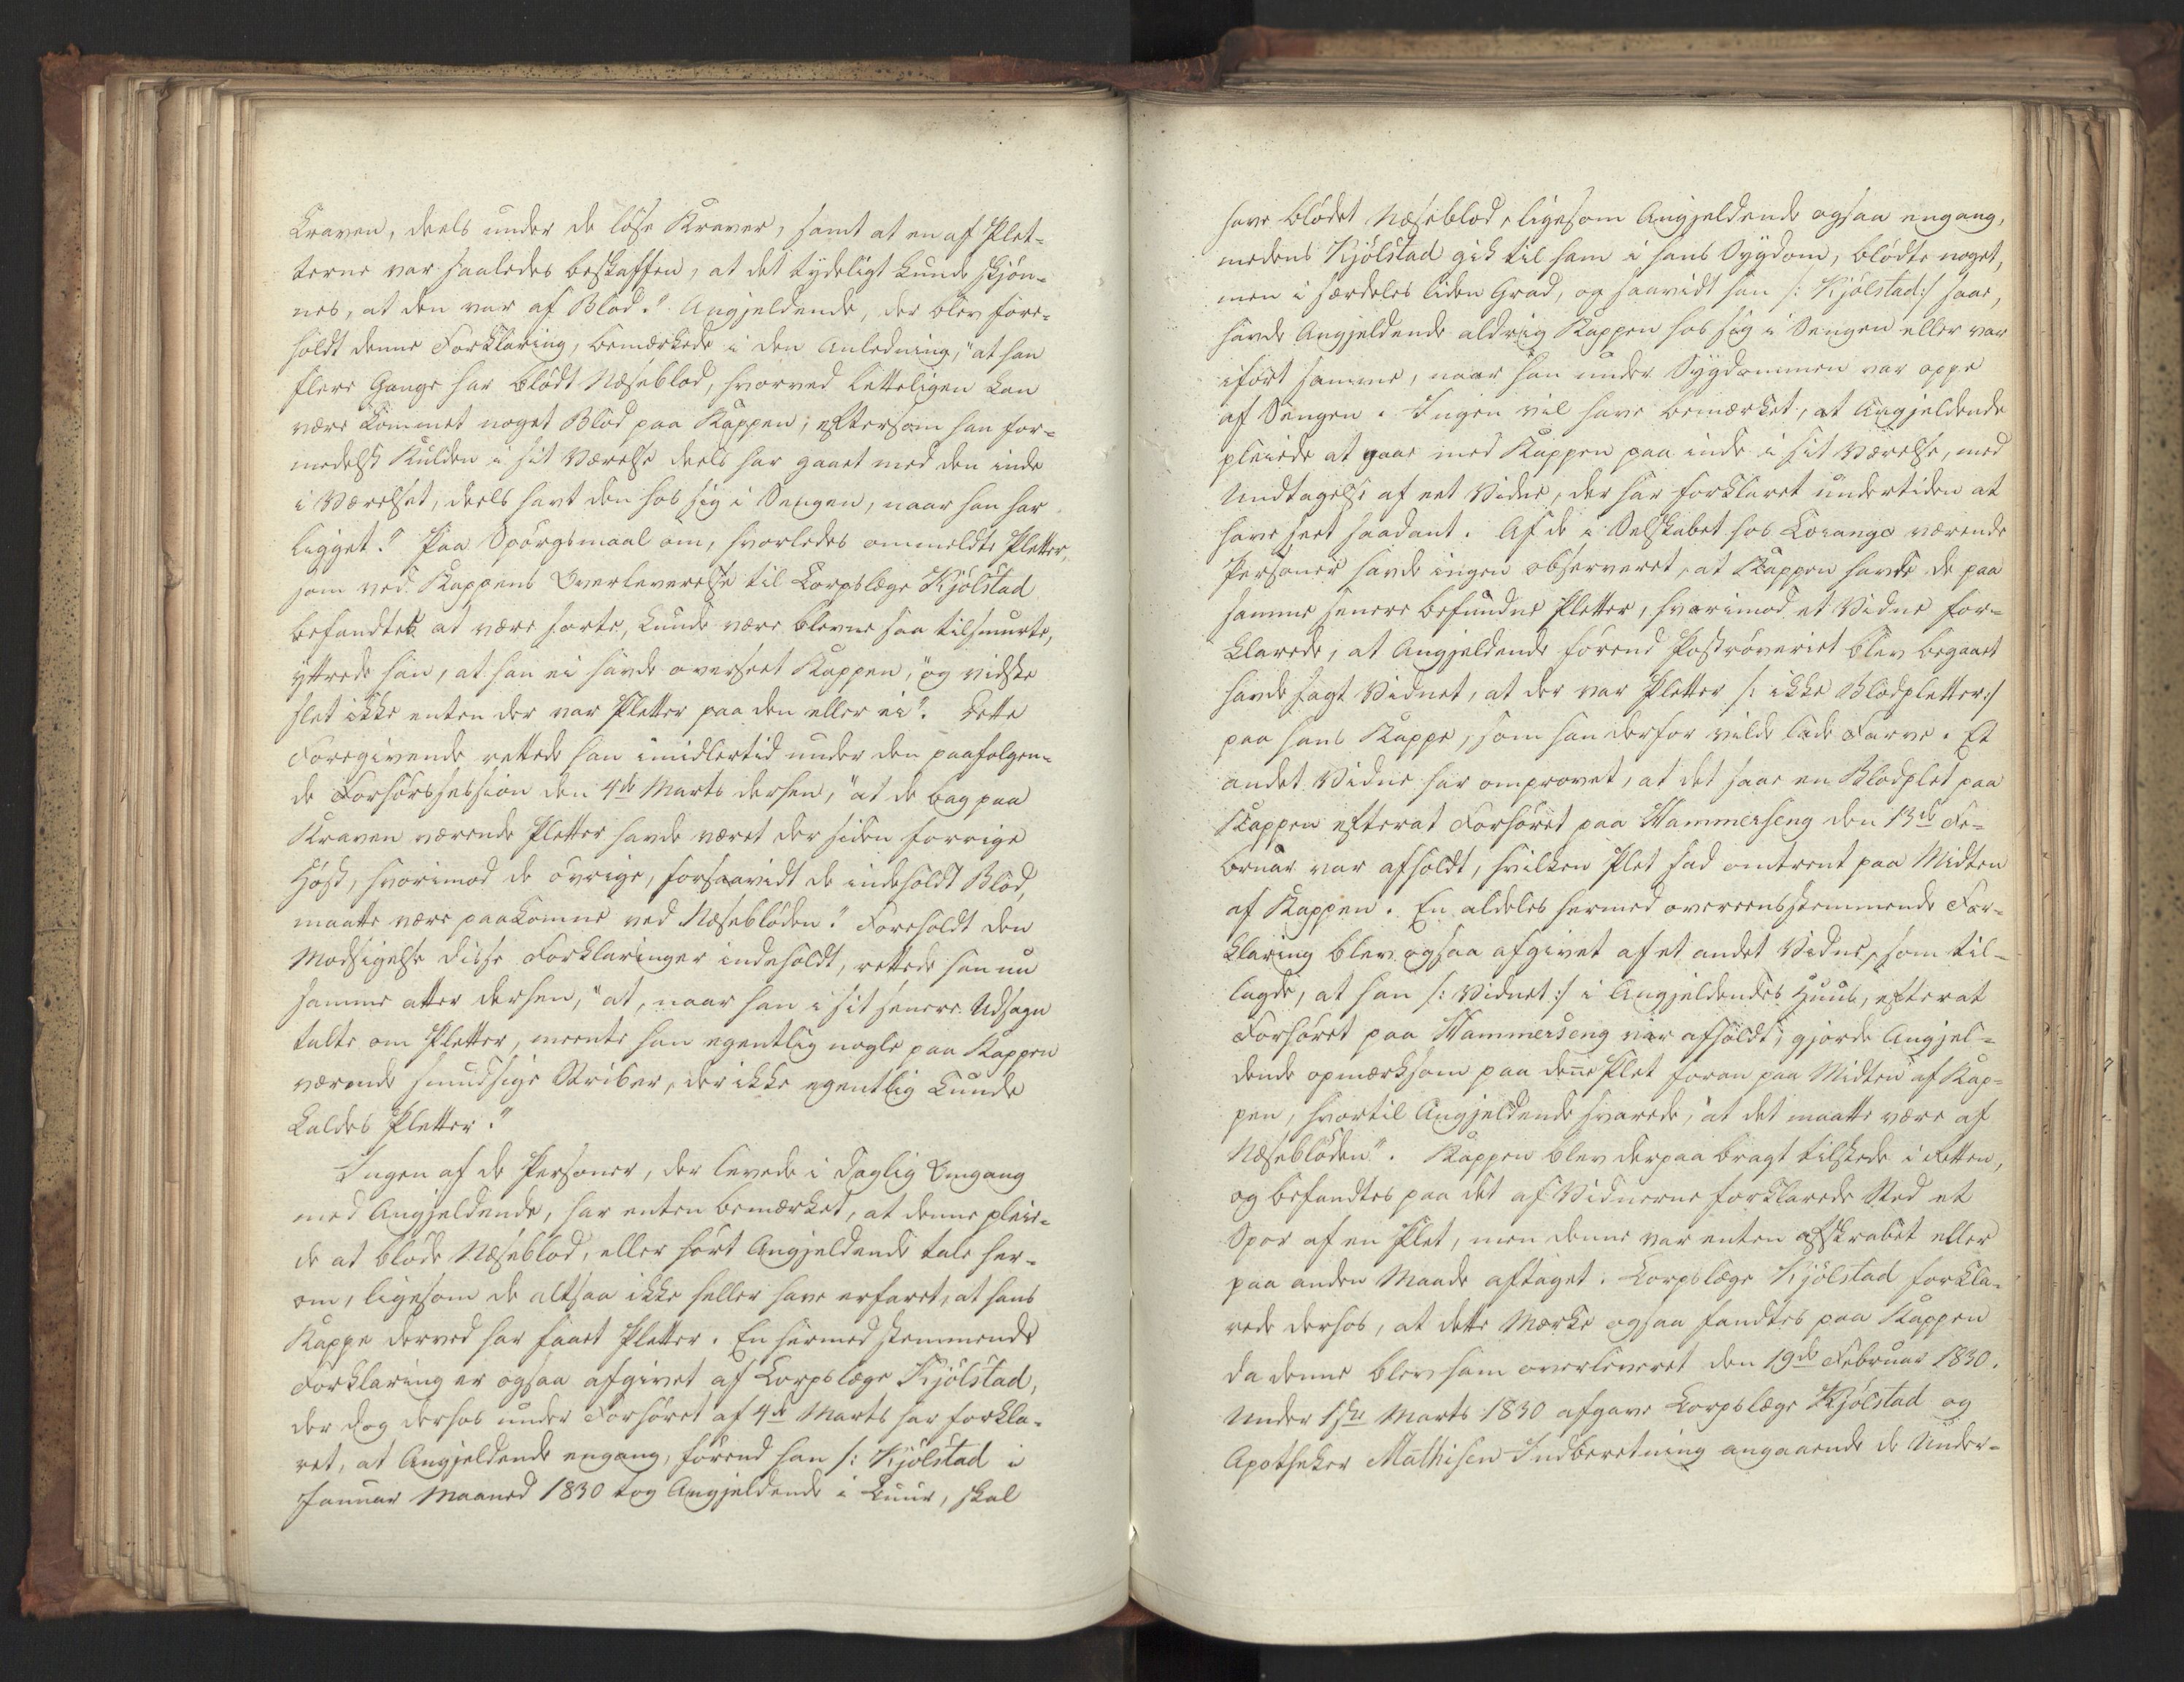 Kraven, deels under de löse Kraver, samt at en af Plet-
terne var saaledes beskaffen, at det tydeligt kunde skjön-
nes, at den var af Blod." Angjeldende, der blev fore-
holdt denne Forklaring, bemærkede i den Anledning, "at han
flere Gange har blödt Næseblod, hvorved letteligen kan
være kommet noget Blod paa Kappen; eftersom han for-
medelst Kulden i sit Værelse deels har gaaet med den inde
i Værelset, deels havt den hos sig i Sengen, naar han har
ligget." Paa Spörgsmaal om, hvorledes ommeldte Pletter,
som ved Kappens Overleverelse til Corpslæge Kjölstad
befandtes at være sorte, kunde være blevne saa tilsmurte,
yttrede han, at han ei havde overseet Kappen, "og vidste
slet ikke enten der var Pletter paa den eller ei". Dette
Foregivende rettede han imidlertid under den paafölgen-
de Forhörssession den 4de Marts derhen, "at de bag paa
Kraven værende Pletter havde været der siden forrige
Höst, hvorimod de övrige, forsaavidt de indeholdt Blod,
maatte være paakomne ved Næseblöden." Foreholdt den
Modsigelse disse Forklaringer indeholdt, rettede han nu
samme atter derhen, "at, naar han i sit senere Udsagn
talte om Pletter, meente han egentlig nogle paa Kappen
værende smudsige Striber, der ikke egentlig kunde
kaldes Pletter."
Ingen af de Personer, der levede i daglig Omgang
med Angjeldende, har enten bemærket, at denne pleie-
de at blöde Næseblod, eller hört Angjeldende tale her-
om, ligesom de altsaa ikke heller have erfaret, at hans
Kappe derved har faaet Pletter. En hermed stemmende
Forklaring er ogsaa afgivet af Corpslæge Kjölstad,
der dog derhos under Forhöret af 4de Marts har forkla-
ret, at Angjeldende engang, förend han /: Kjölstad i
Januar Maaned 1830 tog Angjeldende i Kuur, skal
have blödet Næseblod, ligesom Angjeldende ogsaa engang,
medens Kjölstad gik til ham i hans Sygdom, blödte noget,
men i særdeles liden Grad, og saavidt han /: Kjölstad :/ saae,
havde Angjeldende aldrig Kappen hos sig i Sengen eller var
ifört samme, naar han under Sygdommen var oppe
af Sengen. Ingen vil have bemærket, at Angjeldende
pleiede at gaae med Kappen paa inde i sit Værelse, med
Undtagelse af eet Vidne, der har forklaret undertiden at
have seet saadant. Af de i Selskabet hos Lorange værende
Personer havde ingen observeret, at Kappen havde de paa
samme senere befundne Pletter, hvorimod et Vidne for-
klarede, at Angjeldende förend Poströveriet blev begaaet
havde sagt Vidnet, at der var Pletter /: ikke Blodpletter :/
paa hans Kappe, som han derfor vilde lade farve. Et
andet Vidne har omprovet, at det saae en Blodplet paa
Kappen efterat Forhöret paa Hammerseng den 13de Fe-
bruar var afholdt, hvilken Plet sad omtrent paa Midten
af Kappen. En aldeles hermed overeensstemmende For-
klaring blev ogsaa afgivet af et andet Vidne, som til-
lagde, at han /: Vidnet :/ i Angjeldendes Huus, efterat
Forhöret paa Hammerseng var afholdt, gjorde Angjel-
dende opmærksom paa denne Plet foran paa Midten af Kap-
pen, hvortil Angjeldende svarede, "at det maatte være af
Næseblöden". Kappen blev derpaa bragt tilstede i Retten,
og befandtes paa det af Vidnerne forklarede Sted et
Spor af en Plet, men denne var enten afskrabet eller
paa anden Maade aftaget. Corpslæge Kjölstad forkla-
rede derhos, at dette Mærke ogsaa fandtes paa Kappen
da denne blev ham overleveret den 19de Februar 1830.
Under 1ste Marts 1830 afgave Corpslæge Kjölstad og
Apotheker Mathisen Indberetning angaaende de Under-